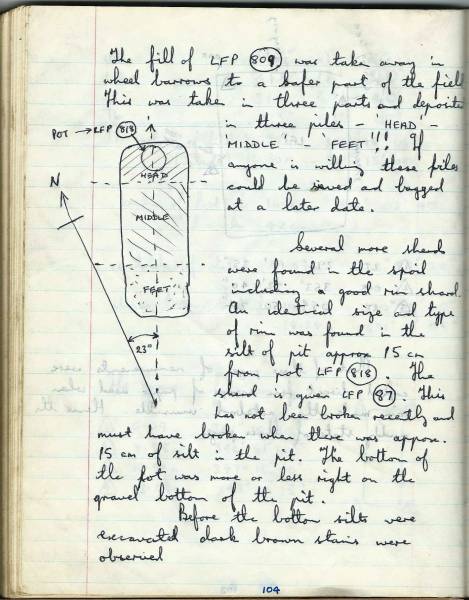 The fill of LFP 809 was taken away in
wheel barrows to a safer part of the field
This was taken in three parts and deposited
in three piles - 'HEAD' -
'MIDDLE' - 'FEET'!! If
anyone is willing these piles
could be sieved and bagged
at a later date.
POT → LFP 818
HEAD
N
MIDDLE
FEET
23°
Several more sherds
were found in the spoil
including a good rim sherd.
An identical size and type
of rim was found in the
silt of pit approx 15 cm
from pot LFP 818. The
sherd is given LFP 87. This
has not been broken recently and
must have broken when there was approx.
15 cm of silt in the pit. The bottom of
the pot was more or less right on the
gravel bottom of the pit.
Before the bottom silts were
excavated dark brown stains were
observed
104